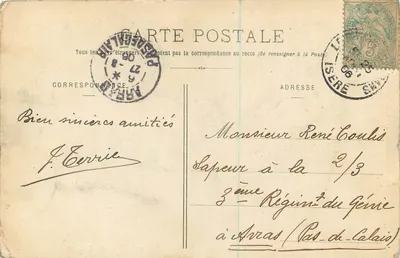 CARTE POSTALE
Tous les pays étrangers n'acceptent pas la correspondance au recto (Se renseigner à la Poste)
CORRESPONDANCE
ARRAS
PAS DE CALAIS
ISERE
Bien sincères amitiés
J. Terrie
Monsieur René Coulis
Sapeur à la 2/3
3ème Régimt du Génie
à Arras (Pas-de-Calais)